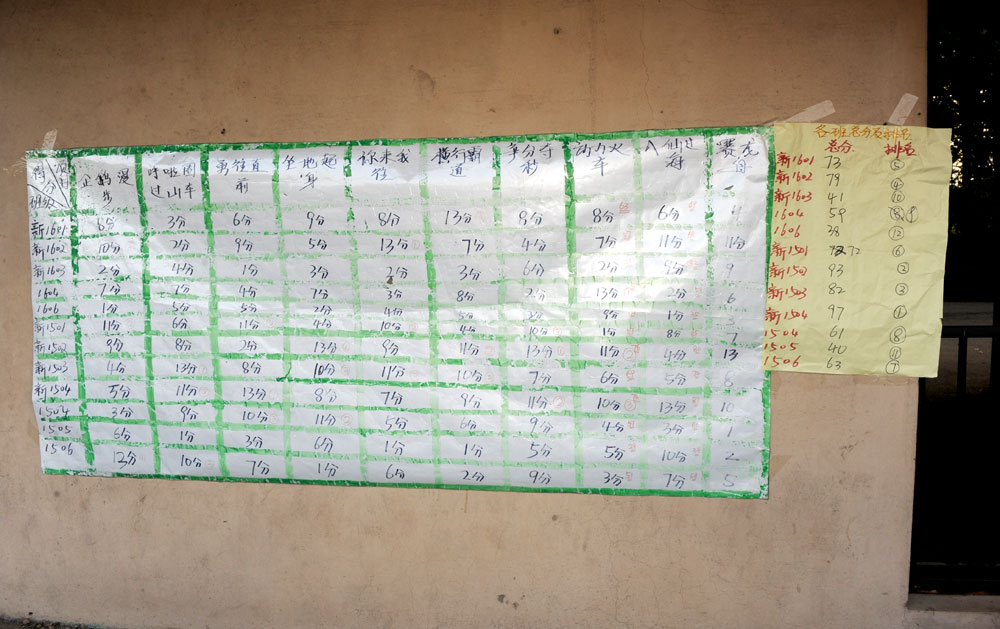 得分 项目 班级
企鹅漫步 呼啦圈过山车 勇往直前 坐地起身 你来我往 横行霸道 争分夺秒 动力火车 八仙过海 赛龙舟
新1601 8分 3分 6分 9分 8分 13分 8分 8分 6分 4
新1602 10分 2分 9分 5分 13分 7分 4分 7分 11分 11分
新1603 2分 4分 1分 3分 2分 3分 6分 2分 9分 9
1604 7分 4分 7分 3分 8分 2分 13分 2分 6
1606 1分 5分 2分 4分 1分
新1501 11分 6分 11分 4分 10分 4分 10分 1分 8分 7
新1502 9分 8分 2分 13分 9分 11分 13分 11分 4分 13
新1503 4分 13分 8分 10分 11分 10分 7分 6分 5分 8
新1504 5分 11分 13分 8分 7分 9分 11分 10分 13分 10
1504 3分 9分 10分 11分 5分 6分 9分 4分 3分 1
1505 6分 1分 3分 6分 1分 1分 5分 5分 10分 2
1506 10分 7分 1分 6分 2分 9分 3分 7分 5
各班总分及排名
总分 排名
新1601 73 ⑤
新1602 79 ④
新1603 41 ⑩
1604 59 ⑨
1606 38 ⑫
新1501 72 ⑥
新1502 93 ②
新1503 82 ③
新1504 97 ①
1504 61 ⑧
1505 40 ⑪
1506 63 ⑦